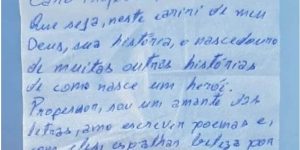 Que seja, neste carini de meu
Deus, sua história, o nascedouro
de muitas outras histórias
de como nasce um herói.
Professor, sou um amante das
letras, amo escrever poemas e,
com eles espalhar beleza por